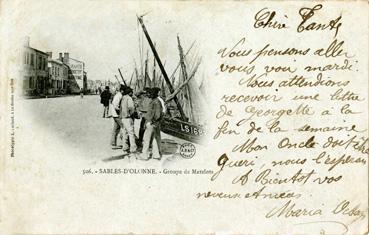 Chère Tante
Vous pensons aller
vous voir mardi.
Nous attendions
recevoir une lettre
de Georgette à la
fin de la semaine
Mon Oncle doit être
gueri, nous l'esperons
A Bientot vos
neveux Amies
Maria
LS
506. - SABLES-D'OLONNE. - Groupe de Matelots